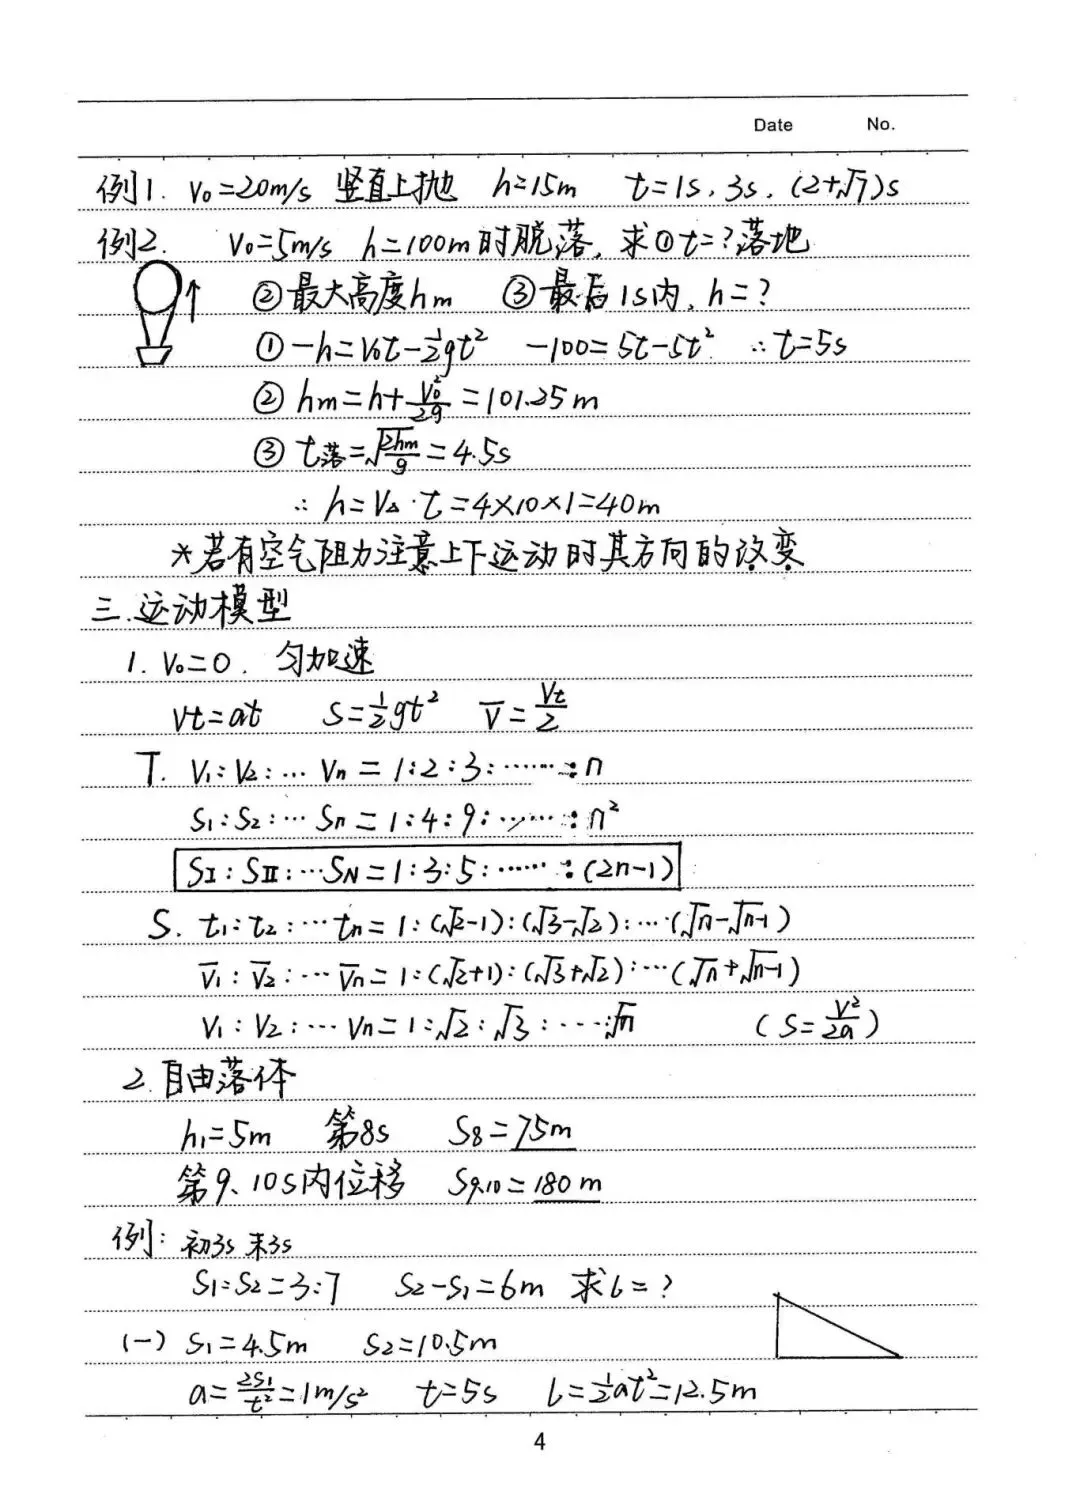 Date No.
例1. V₀=20m/s 竖直上抛 h=15m t=1s, 3s, (2+√7)s
例2. V₀=5m/s h=100m时脱落, 求①t=?落地
②最大高度hm ③最后1s内, h=?
①-h=V₀t-½gt² -100=5t-5t² ∴t=5s
②hm=h+V₀²/2g=101.25m
③t落=√(2hm/g)=4.5s
∴h=V△·t=4×10×1=40m
*若有空气阻力注意上下运动时其方向的改变
三.运动模型
1. V₀=0. 匀加速
Vt=at S=½gt² V̅=Vt/2
T. V₁:V₂:…Vn=1:2:3:……:n
S₁:S₂:…Sn=1:4:9:……:n²
SⅠ:SⅡ:…SN=1:3:5:……:(2n-1)
S. t₁:t₂:…tn=1:(√2-1):(√3-√2):…(√n-√n-1)
V̅₁:V̅₂:…V̅n=1:(√2+1):(√3+√2):…(√n+√n-1)
V₁:V₂:…Vn=1:√2:√3:…:√n (S=V²/2a)
2.自由落体
h₁=5m 第8s S₈=75m
第9、10s内位移 S₉.₁₀=180m
例: 初3s 末3s
S₁:S₂=3:7 S₂-S₁=6m 求L=?
(一) S₁=4.5m S₂=10.5m
a=2S₁/t²=1m/s² t=5s L=½at²=12.5m
4